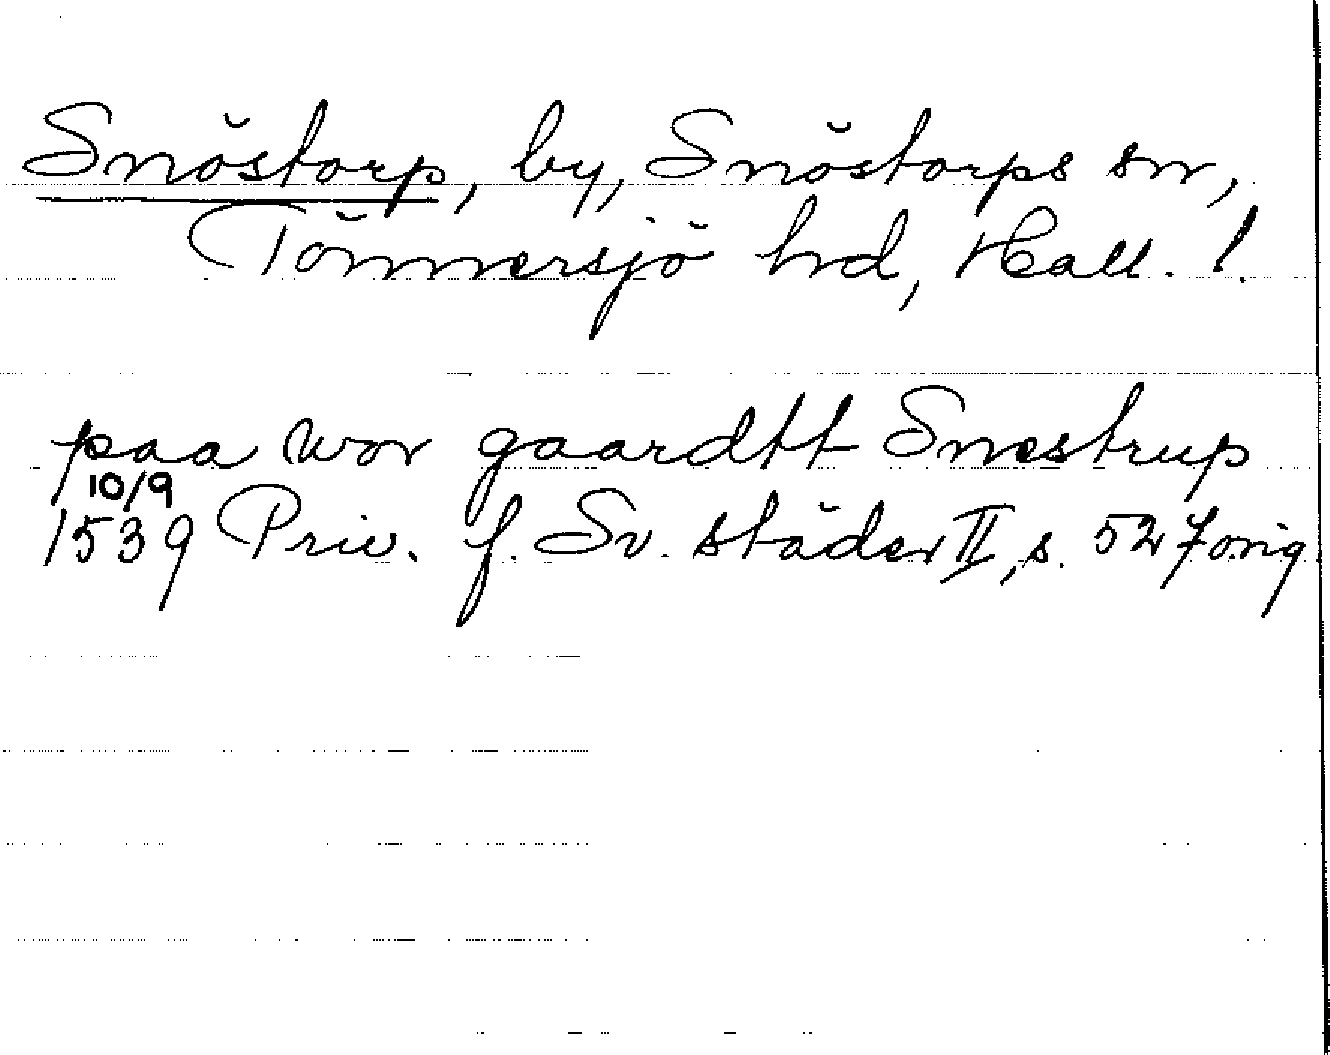 Snöstorp, by, Snöstorps sn,
Tönnersjö hd, Hall. l.
paa wor gaardtt Snestrup
10/9
1539 Priv. f. Sv. städer II, s. 527 orig